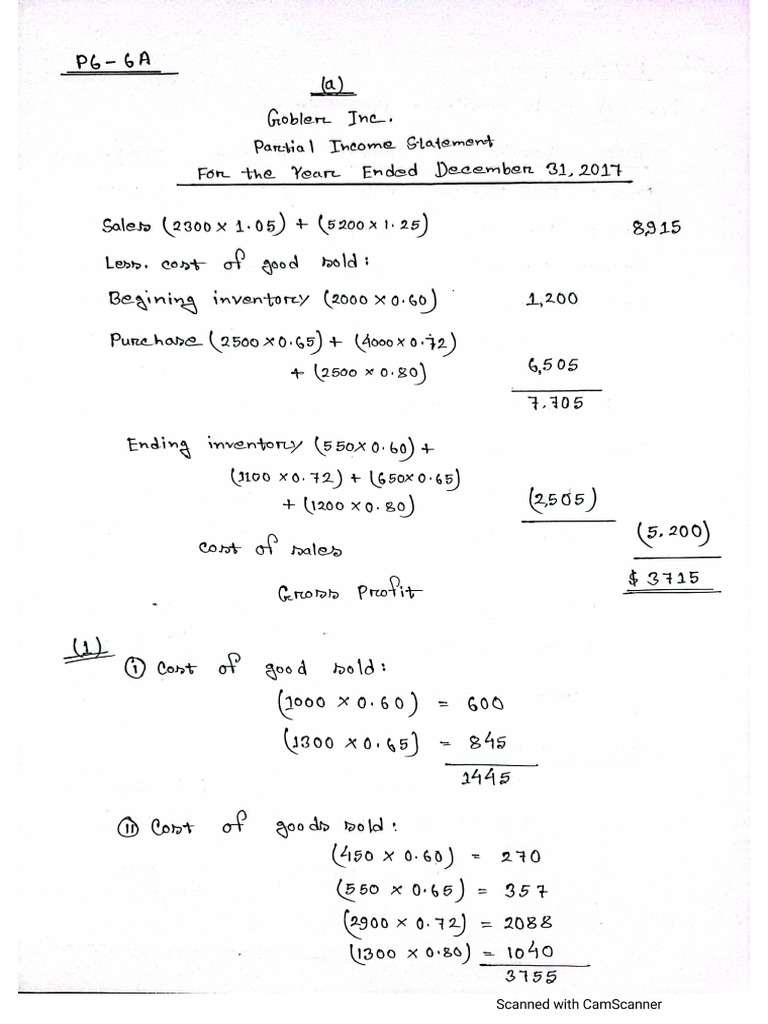 P6-6A
(a)
Goblen Inc.
Partial Income Statement
For the Year Ended December 31, 2017
Sales (2300 × 1.05) + (5200 × 1.25) 8,915
Less. cost of good sold:
Begining inventory (2000 × 0.60) 1,200
Purchase (2500 × 0.65) + (4000 × 0.72)
+ (2500 × 0.80) 6,505
7.705
Ending inventory (550 × 0.60) +
(1100 × 0.72) + (650 × 0.65)
+ (1200 × 0.80) (2,505)
cost of sales (5.200)
Gross Profit $ 3715
(1)
(i) Cost of good sold:
(1000 × 0.60) = 600
(1300 × 0.65) = 845
1445
(ii) Cost of goods sold:
(450 × 0.60) = 270
(550 × 0.65) = 357
(2900 × 0.72) = 2088
(1300 × 0.80) = 1040
3755
Scanned with CamScanner